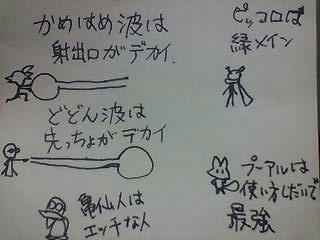 かめはめ波は
射出口がデカイ.
どどん波は
先っちょがデカイ
亀仙人は
エッチな人
ピッコロは
緑メイン
プーアルは
使い方しだいで
最強